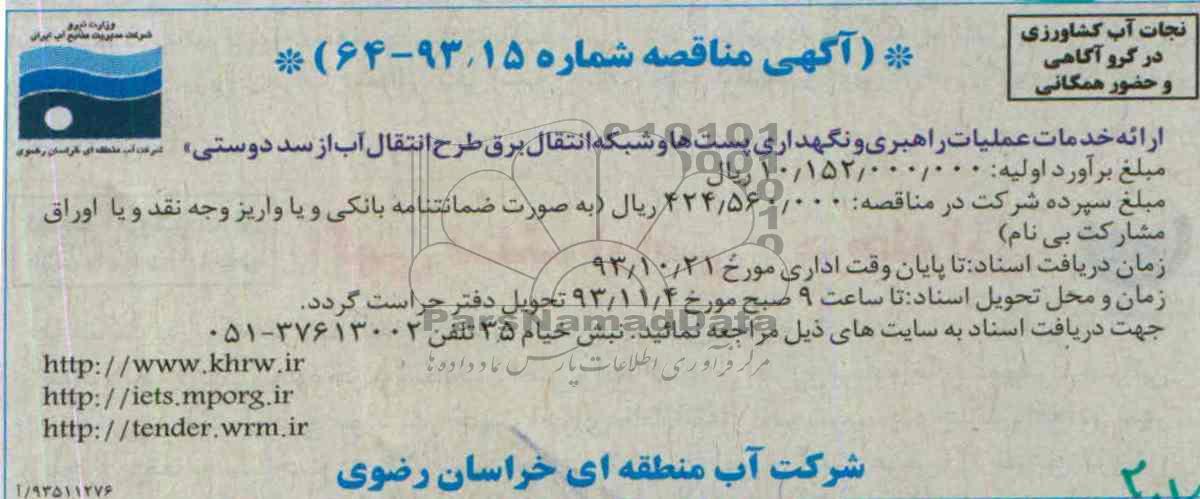 نجات آب کشاورزی
در گرو آگاهی
و حضور همگانی
(آگهی مناقصه شماره ۹۳٫۱۵-۶۴)
وزارت نیرو
شرکت مدیریت منابع آب ایران
شرکت آب منطقه ای خراسان رضوی
ارائه خدمات عملیات راهبری و نگهداری پست ها و شبکه انتقال برق طرح انتقال آب از سد دوستی»
مبلغ برآورد اولیه: ۱۰٫۱۵۲٫۰۰۰٫۰۰۰ ریال
مبلغ سپرده شرکت در مناقصه: ۴۲۴٫۵۶۰٫۰۰۰ ریال (به صورت ضمانتنامه بانکی و یا واریز وجه نقد و یا اوراق
مشارکت بی نام)
زمان دریافت اسناد:تا پایان وقت اداری مورخ ۹۳٫۱۰٫۲۱
زمان و محل تحویل اسناد:تا ساعت ۹ صبح مورخ ۹۳٫۱۱٫۴ تحویل دفتر حراست گردد.
جهت دریافت اسناد به سایت های ذیل مراجعه نمائید. نبش خیام ۳۵ تلفن ۳۷۶۱۳۰۰۲-۰۵۱
ParsNamadData
مرکز فرآوری اطلاعات پارس نماد داده ها
http://www.khrw.ir
http://iets.mporg.ir
http://tender.wrm.ir
شرکت آب منطقه ای خراسان رضوی
۹۳۵۱۱۲۷۶/آ